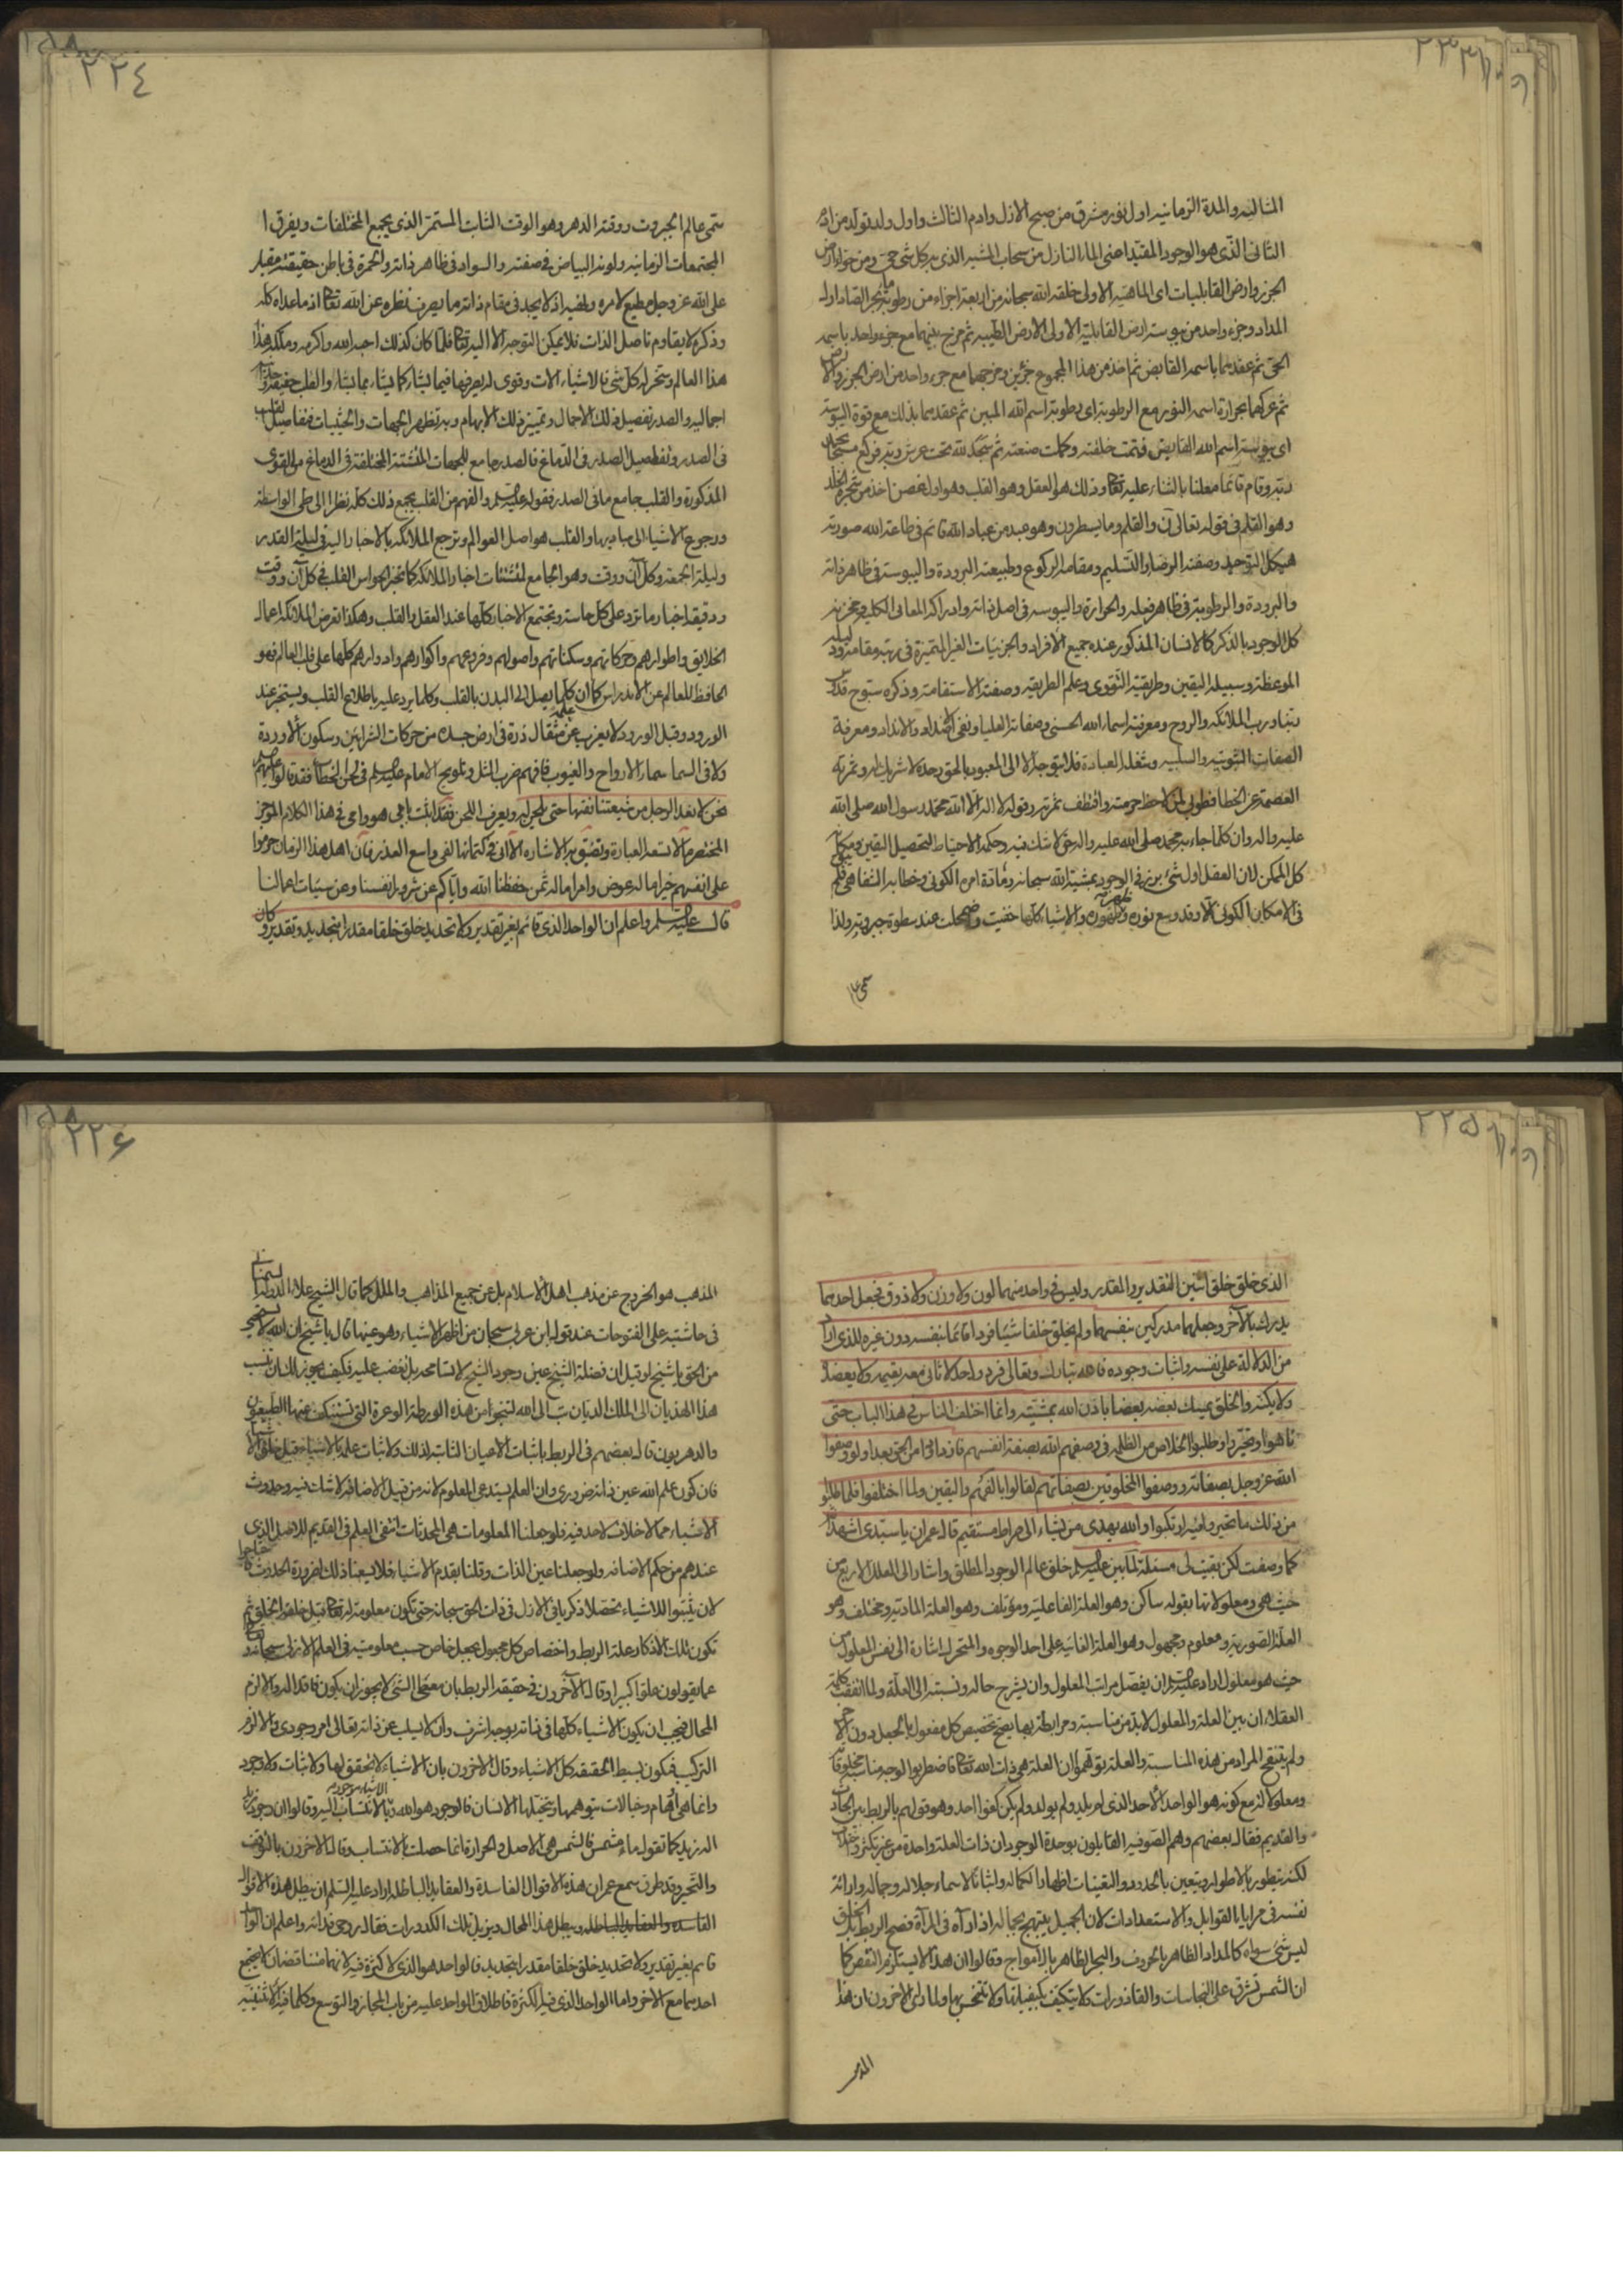 ٢٢٣
المثالية والمدة الزمانية اول نور مشرق من صبح الازل وادم الثالث واول ولد تولد من ادم
الثانى الذى هو الوجود المقيد اعنى الماء النازل من سحاب المشية الذى به كل شئ حى ومن حواء ارض
الجرز وارض القابليات اى الماهية الاولى خلقه الله سبحانه من اربعة اجزاء من رطوبة ماء بحر الصاد اول
المداد وجزء واحد من يبوسة ارض القابلية الاولى الارض الطيبة ثم مزج بينهما مع جزء واحد باسمه
الحى ثم عقدهما باسمه القابض ثم اخذ من هذا المجموع جزئين ومزجها مع جزء واحد من ارض الجرز والارض
ثم عركها بحرارة اسمه النور مع الرطوبة اى رطوبة اسم الله المبين ثم عقدهما بذلك مع قوة اليبوسة
اى يبوسة اسم الله القابض فتمت خلقته وكملت صنعته ثم سجد لله تحت عرش ربه فركع مسبحا بحمد
ربه وقام قائما معلنا بالثناء عليه تعالى وذلك هو العقل وهو القلب وهو اول غصن اخذ من شجرة الخلد
وهو القلم فى قوله تعالى ن والقلم وما يسطرون وهو عبد من عباد الله قائم فى طاعة الله صورته
هيكل التوحيد وصفته الرضا والتسليم ومقامه الركوع وطبيعته البرودة واليبوسة فى ظاهر ذاته
والبرودة والرطوبة فى ظاهر فعله والحرارة واليبوسة فى اصل ذاته وادراكه المعانى الكلية ومخزنه
كل الوجود بالذكر كالانسان المذكور عنده جميع الافراد والجزئيات الغير المتميزة فى رتبة مقامه ودليله
الموعظة وسبيله اليقين وطريقته التقوى وعلم الطريقة وصفته الاستقامة وذكره سبوح قدوس
ربنا ورب الملائكة والروح ومعرفته اسماء الله الحسنى وصفاته العليا ونفى الاضداد والانداد ومعرفة
الصفات الثبوتية والسلبية وشغله العبادة فلا يتوجه الا الى المعبود بالحق وحده لا شريك له وثمرته
العصمة عن الخطا فطوبى لمن لاحظ حرمته واقتطف ثمرته وقوله لا اله الا الله محمد رسول الله صلى الله
عليه واله وان كلما جاء به محمد صلى الله عليه واله حق لا شك فيه وحكمه الاحتياط لتحصيل اليقين ومكانه
كل الممكن لان العقل اول شئ برز فى الوجود بمشية الله سبحانه ومادة امره الكونى وخطابه الشفاهى فلم يبق
فى الامكان الكونى الا وقد وسع نوره وظهوره والاشياء كلها خفيت واضمحلت عند سطوة جبروته ولذا
سمى
٢٢٤
سمى عالم الجبروت ووقته الدهر وهو الوقت الثابت المستمر الذى يجمع المختلفات ويفرق
المجتمعات الزمانية ولونه البياض فى صفته والسواد فى ظاهر ذاته والحمرة فى باطن حقيقته مقبل
على الله عز وجل مطيع لامره ولغيره اذ لا يجد فى مقام ذاته ما يصرف نظره عن الله تعالى اذ ما عداه كله
وذكره لا يقاوم تاصل الذات فلا يمكن التوجه الا اليه تعالى فلما كان كذلك احبه الله واكرمه وملكه هذا
هذا العالم وسخر له كل شئ فالاشياء الات وقوى له يصرفها فيما يشاء كما يشاء بما يشاء والقلب حقيقته
اجمالية والصدر تفصيل ذلك الاجمال وتمييز ذلك الابهام وبه تظهر الجهات والحيثيات فتفاصيل القلب
فى الصدر وتفصيل الصدر فى الدماغ فالصدر جامع للجهات المتشتتة المختلفة فى الدماغ من القوى
المذكورة والقلب جامع ما فى الصدر فقوله عليه السلم والفهم من القلب يجمع ذلك كله نظرا الى طى الواسطة
ورجوع الاشياء الى مباديها والقلب هو اصل العوالم وترجع الملائكة بالاخبار اليه فى ليلة القدر
وليلة الجمعة وكل آن ووقت وهو الجامع لمتشتتات اخبار الملائكة كما تخبر الحواس القلب فى كل آن ووقت
ودقيقة اخبار ما ترد على كل حاسة وتجتمع الاخبار كلها عند العقل والقلب وهكذا تعرض الملائكة اعمال
الخلايق واطوارهم وحركاتهم وسكناتهم واصولهم وفروعهم واكوارهم وادوارهم كلها على قلب العالم فهو
الحافظ للعالم عن الاندراس كما ان كلما يصل الى البدن بالقلب وكلما يرد عليه باطلاع القلب ويستخبر عند
الورود وقبل الورود لا يعزب عن علمه مثقال ذرة فى ارض جسده من حركات الشرايين وسكون الاوردة
ولا فى السماء سماء الارواح والغيوب فافهم ضرب المثل وتلويح الامام عليه السلم فى لحن الخطاب فقد قالوا عليهم السلم
نحن لا نعد الرجل من شيعتنا فقيها حتى يلحن له ويعرف اللحن فقد اثبت لمن هو واعى فى هذا الكلام الموجز
المختصر ما لا تسعه العبارة وتضيق به الاشارة الا انى فى كتمانها لفى واسع العذر فان اهل هذا الزمان حرموا
على انفسهم خيرا ماله عوض وامرا ماله ثمن حفظنا الله واياكم عن شرور انفسنا وعن سيئات اعمالنا
قال عليه السلم واعلم ان الواحد الذى قائم بغير تقدير ولا تحديد خلق خلقا مقدرا بتحديد وتقدير وكان
٢٢٥
الذى خلق خلق اثنين التقدير والمقدر وليس فى واحد منهما لون ولا وزن ولا ذوق فجعل احدهما
يدرك بالآخر وجعلهما مدركين بنفسهما ولم يخلق خلقا شيئا فردا قائما بنفسه دون غيره للذى اراد
من الدلالة على نفسه واثبات وجوده فالله تبارك وتعالى فرد واحد لا ثانى معه يقيمه ولا يعضده
ولا يكنه والخلق يمسك بعضه بعضا باذن الله بمشيته وانما اختلف الناس فى هذا الباب حتى
تاهوا وتحيروا وطلبوا الخلاص من الظلمة فى وصفهم الله بصفة انفسهم فازدادوا من الحق بعدا ولو وصفوا
الله عز وجل بصفاته ووصفوا المخلوقين بصفاتهم لقالوا بالفهم واليقين ولما اختلفوا فلما طلبوا
من ذلك ما تحيروا فيه ارتكبوا والله يهدى من يشاء الى صراط مستقيم قال عمران يا سيدى اشهد انه
كما وصفت لكن بقيت لى مسئلة لما بين عليه السلم خلق عالم الوجود المطلق واشار الى العلل الاربع من
حيث هى ومعلولاتها بقوله ساكن وهو العلة الفاعلية ومؤتلف وهو العلة المادية ومختلف وهو
العلة الصورية ومعلوم ومجهول وهو العلة الغائية على احد الوجوه والمتحرك اشارة الى نفس المعلول من
حيث هو معلول اراد عليه السلم ان يفصل مراتب المعلول وان يشرح حاله ونسبته الى العلة ولما اتفقت كلمة
العقلاء ان بين العلة والمعلول لا بد من مناسبة ومرابطة بها يصح تخصيص كل مفعول بالجعل دون الآخر
ولم يتنقح المراد من هذه المناسبة والعلة توهموا ان العلة هى ذات الله تعالى فاضطربوا لوجه مناسبة مخلوقاته
ومعلولاته مع كونه هو الواحد الاحد الذى لم يلد ولم يولد ولم يكن له كفوا احد وهو قولهم بالربط بين الحادث
والقديم فقال بعضهم وهم الصوفية القايلون بوحدة الوجود ان ذات العلة واحدة من غير تكثر
لكنه يتطور بالاطوار ويتعين بالحدود والتعينات اظهارا لكماله واثباتا لاسماء جلاله وجماله وارائة
نفسه فى مرايا القوابل والاستعدادات لان الجميل يبتهج بجماله اذا رآه فى المرآة فصح الربط بل الخلق
ليس شئ سواه كالمداد الظاهر بالحروف والبحر الظاهر بالامواج وقالوا ان هذا لا يستلزم النقص كما
ان الشمس تشرق على النجاسات والقاذورات ولا تتكيف بكيفياتها ولا تتنجس بها ولما راى الاخرون ان هذا
المذهب
٢٢۶
المذهب هو الخروج عن مذهب اهل الاسلام بل عن جميع المذاهب والملل كما قال الشيخ علاء الدولة السمنانى
فى حاشيته على الفتوحات عند قول ابن عربى سبحان من اظهر الاشياء وهو عينها قال يا شيخ ان الله لا يستحيى
من الحق يا شيخ لو قيل ان فضلة الشيخ عين وجود الشيخ لا تسامحه بل تغضب عليه فكيف يجوز لك ان تنسب
هذا الهذيان الى الملك الديان تب الى الله لتنجوا من هذه الورطة الوعرة التى تستنكف عنها الطبيعيون
والدهريون قال بعضهم فى الربط باثبات الاعيان الثابتة لذلك ولاثبات علمه بالاشياء قبل خلق الاشياء
فان كون علم الله عين ذاته ضرورى وان العلم يستدعى المعلوم لانه من قبيل الاضافة لا شك فيه وحدوث
الاشياء مما لا خلاف لاحد فيه فلو جعلنا المعلومات هى المحدثات انتفى العلم فى القديم للاصل الذى
عندهم من حكم الاضافة ولو جعلنا عين الذات وقلنا بقدم الاشياء فلا يسعنا ذلك لضرورة الحدوث فاحتاجوا
لان يثبتوا للاشياء تحصلا ذكريا فى الازل فى ذات الحق سبحانه حتى تكون معلومة له تعالى قبل خلقه الخلق ثم
تكون تلك الاذكار علة الربط واختصاص كل مجعول بجعل خاص حسب معلوميته فى العلم الازلى سبحانه وتعالى
عما يقولون علوا كبيرا وقال الآخرون فى حقيقة الربط بان معطى الشئ لا يجوز ان يكون فاقدا له والا لزم
المحال فيجب ان يكون الاشياء كلها فى ذاته بوجه اشرف وان لا يسلب عن ذاته تعالى امر وجودى والا لزم
التركيب فيكون بسيط الحقيقة كل الاشياء وقال الاخرون بان الاشياء لا تحقق لها ولا ثبات ولا وجود
وانما هى اوهام وخيالات يتوهمها ويتخيلها الانسان فالوجود هو الله والاشياء موجودة بالانتساب اليه وقالوا ان وجود زيد
اله زيد كما تقول ماء مشمس فالشمس هى الاصل والحرارة انما حصلت بالانتساب وقال الاخرون بالتوقف
والتحير وقد طرق سمع عمران هذه الاقوال الفاسدة والعقايد الباطلة اراد عليه السلم ان يبطل هذه الاقوال
الفاسدة والعقايد الباطلة ويبطل هذا المحال ويزيل تلك الكدورات فقال روحى فداه واعلم ان الواحد
قائم بغير تقدير ولا تحديد خلق خلقا مقدرا بتحديد فالواحد هو الذى لا كثرة فيه لانهما متناقضان لا يجتمع
احدهما مع الاخر واما الواحد الذى فيه الكثرة فاطلاق الواحد عليه من باب المجاز والتوسع وكلما فيه الاثنينية